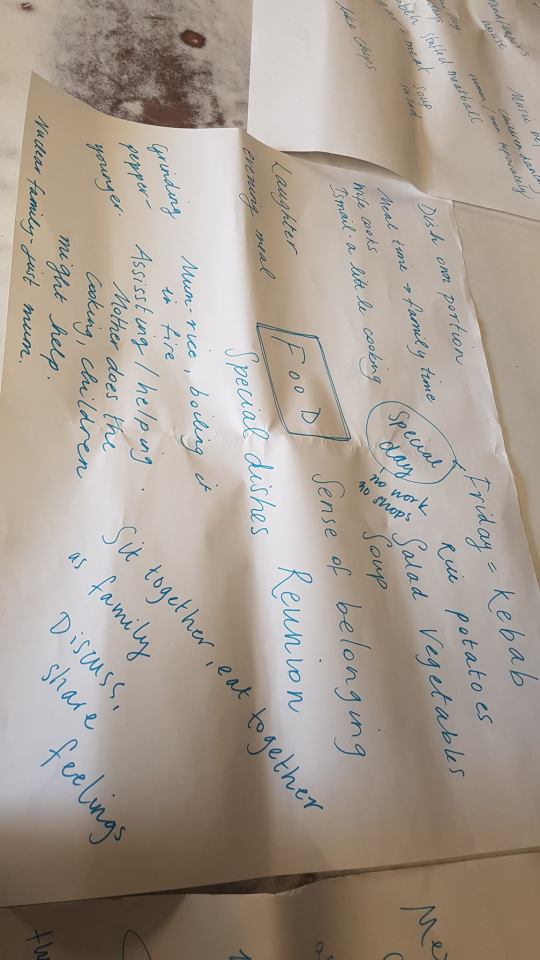 house
stuffed meatball
meat soup
salad
Dish own portion
Meal time → family time
Ismail - a little cooking
Friday = Kebab
Rice potatoes
Salad Vegetables
Soup
Special
day
no work
no shops
Laughter
every meal
FOOD
Sense of belonging
Reunion
Special dishes
Grinding
pepper
younger.
Mum-rice, boiling it
in fire
Assissting / helping
Mother does the
cooking, children
might help.
Nuclear family - just mum.
Sit together, eat together
as family
Discuss,
share feelings